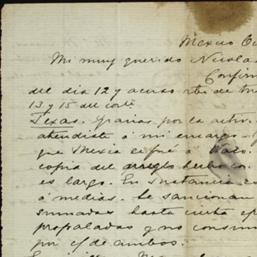 Mexico Oc
Mi muy querido Nicolas
Confirm
del dia 12 y acuso rbo de tus
13 y 15 del corte
Texas. Gracias por la activ
atendiste á mi encargo
que Mexia
copia del arreglo hecho con
es largo. En sustancia co
á medias. Se sancionan
sumadas hasta cierta ép
propaladas y no consum
por c/ de ambos.